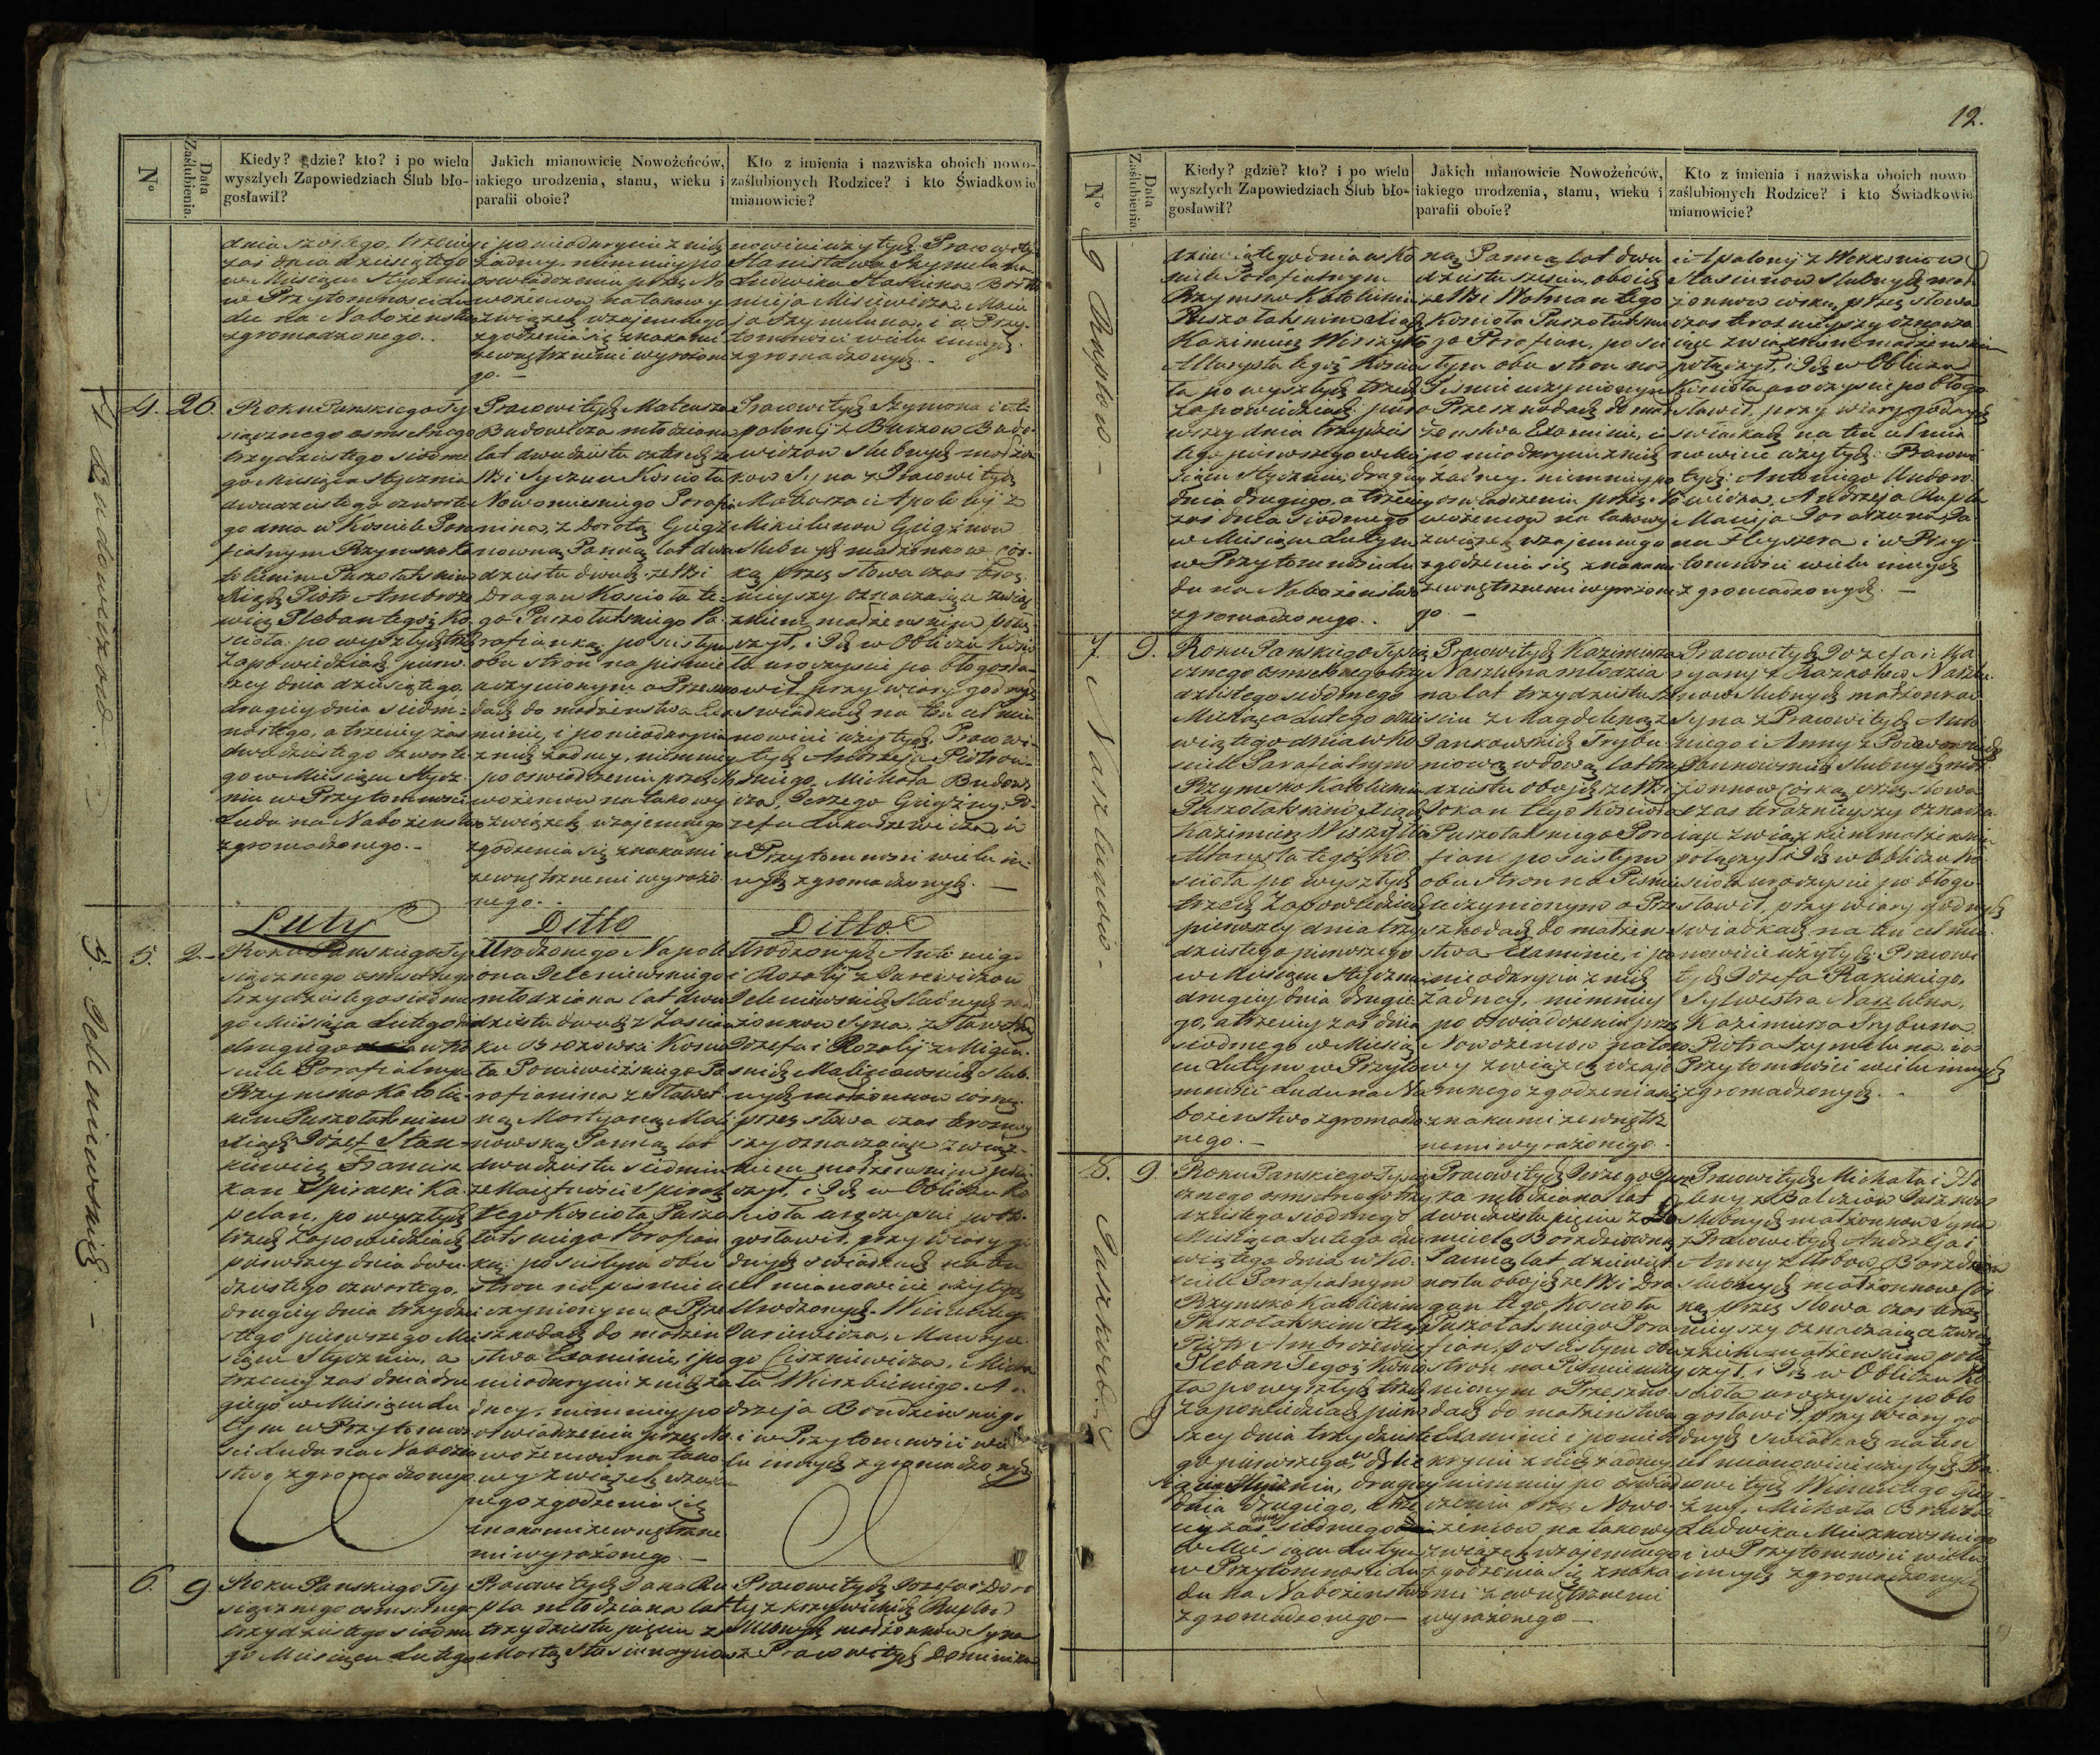 N°
Data Zaślubienia.
Kiedy? gdzie? kto? i po wielu
wyszłych Zapowiedziach Ślub bło-
gosławił?
Jakich mianowicie Nowożeńców,
iakiego urodzenia, stanu, wieku i
parafii oboie?
Kto z imienia i nazwiska oboich nowo-
zaślubionych Rodzice? i kto Świadkowie
mianowicie?
dnia szóstego, trzeciey
zaś dnia dziesiątego
w Miesiącu Styczniu
w Przytomnosci Lu-
du na Nabożenstwo
zgromadzonego.
i po nieodkryciu z nich
żadney, niemniey po
oswiadczeniu przez No
wożencow na takowy
związek wzajemnego
zgodzenia się znakami
zewnętrznemi wyrażone
go.
nowicie użytych Pracowitych
Stanisława Szymeluna
Ludwika Staskuna Barto
mieja Misiewicza Macie
ja Szymeluna, i w Przy-
tomnosci wielu innych
zgromadzonych.
4 Budowiczow.
4. 26.
Roku Panskiego Ty
siącznego osmsetnego
trzydziestego siodme
go Miesiąca Stycznia
dwudziestego szwarte
go dnia w Kosciele Para
fialnym Rzymsko Ka
tolickim Puszołatskim
Xiądz Piotr Ambroże
wicz Pleban tegoż Ko
scioła po wyszłych trzech
Zapowiedziach pierw-
szey dnia dziesiątego
drugiey dnia siedm-
nastego, a trzeciey zaś
dwudziestego czwarte
go w Miesiącu Stycz-
niu w Przytomnosci
Ludu na Nabożenstwo
zgromadzonego.
Pracowitych Mateusza
Budowicza młodziana
lat dwudziestu czterech ze
Wsi Syczun Koscioła
Nowomieskiego Parafia
nina, z Dorotą Gigż
nowną Panną lat dwu
dziestu dwuch ze Wsi
Dragan Koscioła te-
go Puszołatskiego Pa
rafianką, po scisłym
obu stron na pismie
uczynionym o Przeszko
dach do małżenstwa Exa
minie, i po nieodkryciu
z nich żadney, niemniey
po oswiadczeniu przez No
wożencow na takowy
związek wzajemnego
zgodzenia się znakami
zewnętrznemi wyrażo
nego.
Pracowitych Szymona i A-
polonij z Burzow Budo-
wiczow slubnych małżon
kow Syna z Pracowitych
Mateusza i Apolonij z
Mikulunow Gigżnow
slubnych małżonkow cór-
ką przez słowa czas teraz
nieyszy oznaczaiące zwią
zkiem małżenskim połą
czył, i Ich w Obliczu Kosc
ioła uroczyscie pobłogosła-
wił, przy wiary godnych
swiadkach na ten cel mia
nowicie użytych Pracowi
tych Andrzeja Piotrow-
skiego Michała Budowi
cza, Jerzego Gigżny, Jo-
zefa Lukaszewicza, i
w Przytomnosci wielu in-
nych zgromadzonych.
Luty
Ditto
Ditto
5. Jeleniewskich.
5. 2.
Roku Panskiego Ty
siącznego osmsetnego
trzydziestego siodme
go Miesiąca Lutego dnia
drugiego w Ko
sciele Parafialnym
Rzymsko Katolic-
kim Puszołatskim
Xiądz Józef Stan-
kiewicz Francisz
kan Spiracki Ka
pelan, po wyszłych
trzech Zapowiedziach
pierwszey dnia dwu
dziestego czwartego,
drugiey dnia trzydzie
stego pierwszego Mie
siącu Styczniu, a
trzeciey zaś dnia dru
giego w Miesiącu Lu
tym w Przytomno
sci Ludu na Nabożen
stwo, zgromadzonego
Urodzonego Napole
ona Jeleniewskiego
młodziana lat dwu
dziestu dwuch z Zascian
ku Brozowki Koscio
ła Poniewieżskiego Pa
rafianina z Sławet
ną Martyaną Mali
nowską Panną lat
dwudziestu siedmiu
ze Maiętnosci Spirak
tego Koscioła Puszo
łatskiego Parafian
ką po scisłym obu
stron na pismie u
czynionym o Prze
szkodach do małżen
stwa Examinie, i po
nieodkryciu z nich ża
dney, niemniey po
oswiadczeniu przez No
wożencow na tako
wy związek wzaie
mnego zgodzenia się
znakami zewnętrzne
mi wyrażonego.
Urodzonych Antoniego
i Rozalij z Jurewiczow
Jeleniewskich slubnych mał
żonkow Syna, z Sławetnych
Józefa i Rozalij z Migu-
skich Malinowskich slub-
nych małżonkow corką
przez słowa czas teraznie
szy oznaczaiące związ-
kiem małżenskim połą
czył, i Ich w Obliczu Ko
scioła uroczyscie pobło-
gosławił, przy wiary go
dnych swiadkach na ten
cel mianowicie użytych
Urodzonych Wincentego
Juriewicza, Maurycy-
go Ciszkiewicza, Micha
ła Wierzbickiego, A-
drzeja Brudzinskiego
i w Przytomnosci wie
lu innych zgromadzonych
6. 9
Roku Panskiego Ty
siącznego osmsetnego
trzydziestego siodme
go Miesiącu Lutego
Pracowitych Jana Ru
pla młodziana lat
trzydziestu pięciu z
Martą Stasiunayciow
Pracowitych Jozefa i Doro
ty z Krzywickich Ruplow
slubnych małżonkow Syna
z Pracowitych Dominika
12.
N°
Data Zaślubienia.
Kiedy? gdzie? kto? i po wielu
wyszłych Zapowiedziach Ślub bło-
gosławił?
Jakich mianowicie Nowożeńców,
iakiego urodzenia, stanu, wieku i
parafii oboie?
Kto z imienia i nazwiska oboich nowo-
zaślubionych Rodzice? i kto Świadkowie
mianowicie?
6 Ruplow
dziewiątego dnia w Ko
sciele Parafialnym
Rzymsko Katolickim
Puszołatskim Xiądz
Kazimierz Wirszyłło
Altarysta tegoż Koscio
ła po wyszłych trzech
Zapowiedziach pier
wszey dnia trzydzies
tego pierwszego w Mie
siącu Styczniu, drugiey
dnia drugiego, a trzeciey
zaś dnia siodmego
w Miesiącu Lutym
w Przytomnosci Lu
du na Nabożenstwo
zgromadzonego.
ną Panną lat dwu
dziestu szesciu, oboich
ze Wsi Wolman tego
Koscioła Puszołatskie
go Parafian, po sci
słym obu stron na
Pismie uczynionym
o Przeszkodach do mał
żenstwa Examinie, i
po nieodkryciu z nich
żadney, niemniey po
oswiadczeniu przez No
wożencow na takowy
związek wzajemnego
zgodzenia się znakami
zewnętrznemi wyrażone
go
i Apolonij z Mekesniow
Stasiunow slubnych mał-
żonkow corką, przez słowa
czas teraznieyszy oznacza
iące związkiem małżenskim
połączył, i Ich w Obliczu
Koscioła uroczyscie pobłogo
sławił, przy wiary godnych
swiadkach na ten cel mia
nowicie użytych Pracowi
tych Antoniego Budow
wicza, Andrzeja Rupla
Macieja Goraszuna, Ja
na Fleyszera i w Przy
tomnosci wielu innych
zgromadzonych.
7. Naszlunow.
7. 9.
Roku Panskiego Tysią
cznego osmsetnego trzy
dziestego siodmego
Miesiąca Lutego dzie
wiątego dnia w Ko
sciele Parafialnym
Rzymsko Katolickim
Puszołatskim Xiądz
Kazimierz Wirszyłło
Altarysta tegoż Ko
scioła po wyszłych
trzech Zapowiedziach
pierwszey dnia trzy
dziestego pierwszego
w Miesiącu Styczniu
drugiey dnia drugie
go, a trzeciey zaś dnia
siodmego w Miesią
cu Lutym w Przyto
mnosci Ludu na Na
bożenstwo zgromadzo
nego.
Pracowitych Kazimierza
Naszluna młodzia
na lat trzydziestu sze
sciu z Magdeleną z
Jankowskich Trybu
niową wdową lat trzy
dziestu obojch ze Wsi
Jokan tego Koscioła
Puszołatskiego Para
fian po scisłym
obu stron na Pismie
uczynionym o Prze
szkodach do małżen
stwa Examinie, i po
nieodkryciu z nich
żadney, niemniey
po oswiadczeniu przez
Nowożencow na tako
wy związek wzaje
mnego zgodzenia się
znakami zewnętrz
nemi wyrażonego.
Pracowitych Jozefa i Ma
ryany z Razkow Naszlu-
now slubnych małżonkow
Syna z Pracowitych Anto
niego i Anny z Podworskich
Jankowskich slubnych mał
żonkow corką, przez słowa
czas teraznieyszy oznacza
iące związkiem małżenskim
połączył i Ich w Obliczu Ko
scioła uroczyscie pobłogo
sławił, przy wiary godnych
swiadkach na ten cel mia
nowicie użytych Pracowi
tych Jozefa Rapickiego,
Sylwestra Naszluna,
Kazimierza Trybuna
Piotra Szymeluna i w
Przytomnosci wielu innych
zgromadzonych.
8. Puszkow
8. 9.
Roku Panskiego Tysią
cznego osmsetnego trzy
dziestego siodmego
Miesiąca Lutego dzie
wiątego dnia w Ko
sciele Parafialnym
Rzymsko Katolickim
Puszołatskim Xiądz
Piotr Ambrożewicz
Pleban Tegoż Koscio
ła po wyszłych trzech
Zapowiedziach pierw
szey dnia trzydzieste
go pierwszego w Mie
siącu Styczniu, drugiey
dnia drugiego, a trze
ciey zaś dnia siodmego
w Miesiącu Lutym
w Przytomnosci Lu
du na Nabożenstwo
zgromadzonego
Pracowitych Jerzego Pusz
ka młodziana lat
dwudziestu pięciu z Do
micelą Borzdziowną
Panną lat dziewięt
nastu obojch ze Wsi Dra
gan tego Koscioła
Puszołatskiego Para
fian, po scisłym obu
stron na Pismie uczy
nionym o Przeszko
dach do małżenstwa
Examinie i po nieod
kryciu z nich żadney
niemniey po oswiad
czeniu przez Nowo-
żencow na takowy
związek wzajemnego
zgodzenia się znaka
mi zewnętrznemi
wyrażonego
Pracowitych Michała i He
leny z Balciow Puszkow
slubnych małżonkow Syna
z Pracowitych Andrzeja i
Anny z Urbow Borzdziow
slubnych małżonkow Cór
ką przez słowa czas teraz
nieyszy oznaczaiące związ
zkiem małżenskim połą
czył, i Ich w Obliczu Ko
scioła uroczyscie pobło
gosławił, przy wiary go
dnych swiadkach na ten
cel mianowicie użytych Pra
cowitych Wincentego Gig
żny, Michała Brazda
Ludwika Mieszkowskiego
i w Przytomnosci wielu
innych zgromadzonych